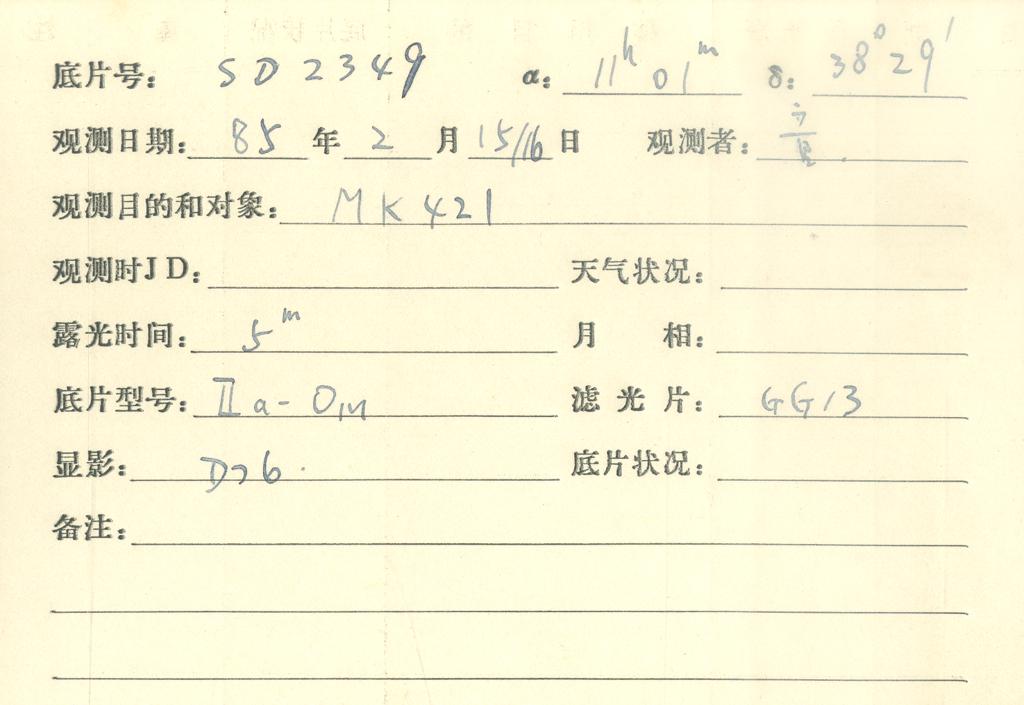 底片号： SD2349 α： 11ʰ 01ᵐ δ： 38° 29′
观测日期： 85 年 2 月 15/16 日 观测者：
观测目的和对象： MK421
观测时JD： 天气状况：
露光时间： 5ᵐ 月 相：
底片型号： IIa-O, 滤光片： GG13
显影： D76. 底片状况：
备注：